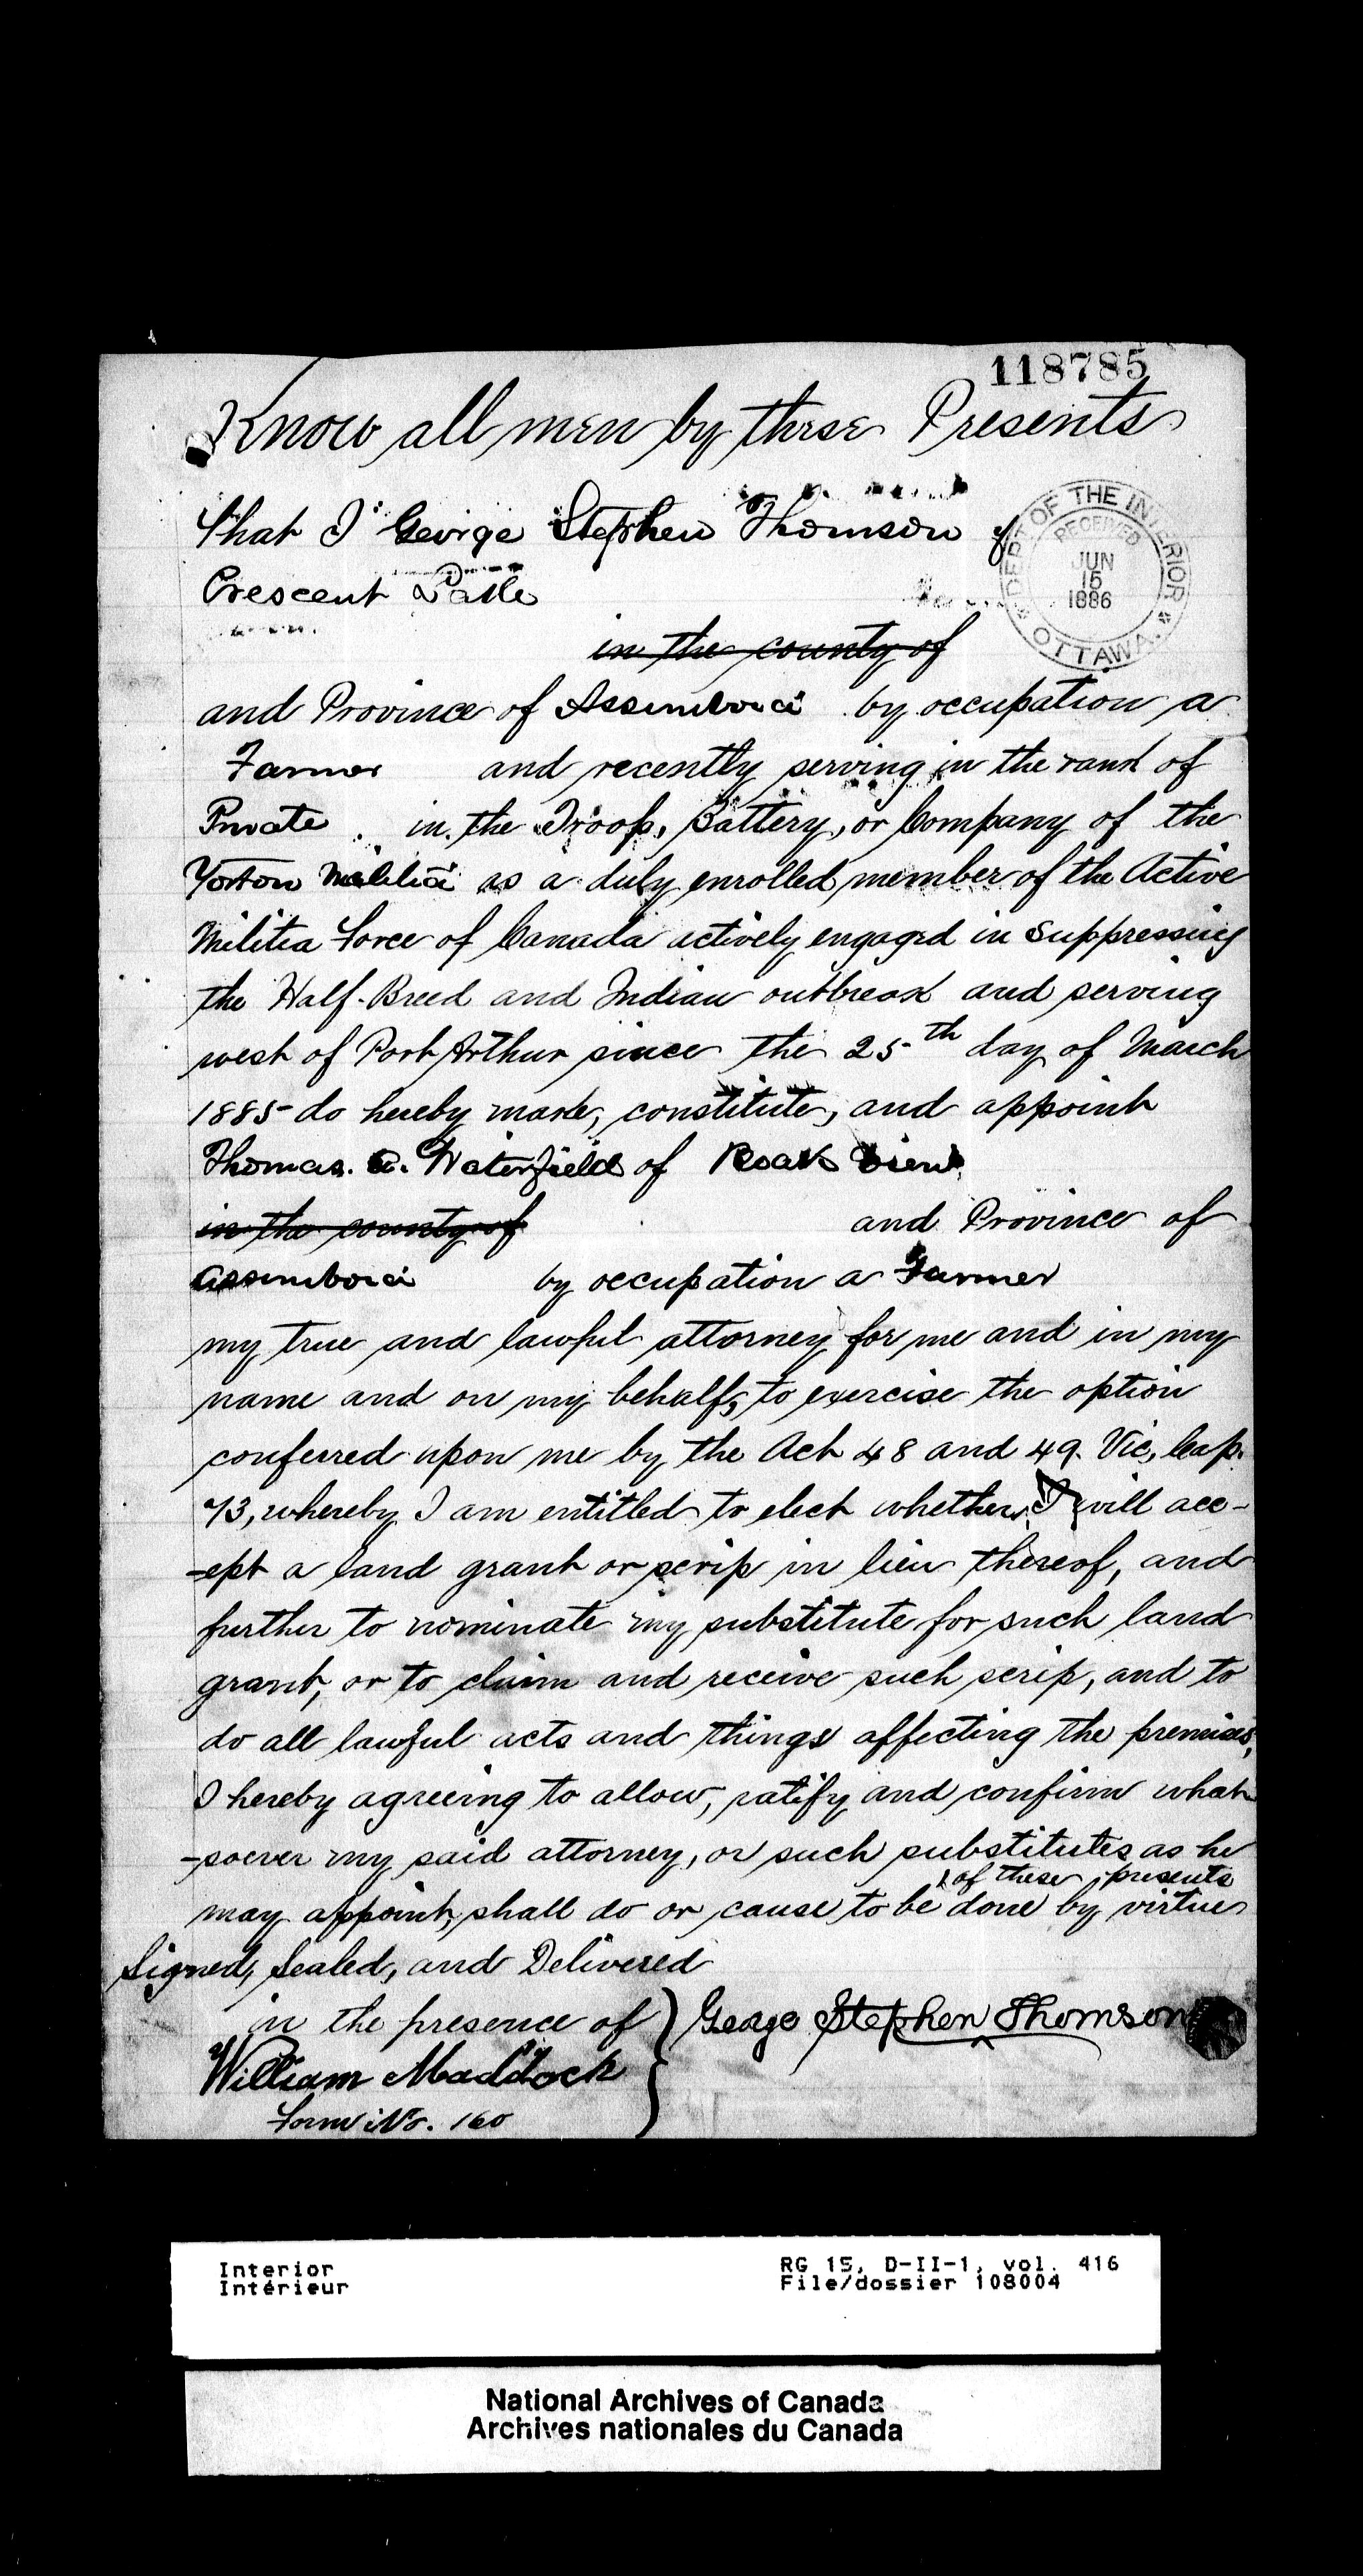 118785
Know all men by these Presents
That I George Stephen Thomson of
Crescent Lake
DEPT OF THE INTERIOR
RECEIVED
JUN
15
1886
OTTAWA.
in the county of
and Province of Assiniboia by occupation a
Farmer and recently serving in the rank of
Private. in the Troop, Battery, or Company of the
Yorkton Militia as a duly enrolled member of the Active
Militia Force of Canada actively engaged in Suppressing
the Half-Breed and Indian outbreak and serving
west of Port Arthur since the 25th day of March
1885 do hereby make, constitute, and appoint
Thomas. Waterfield of
in the county of and Province of
Assiniboia by occupation a Farmer
my true and lawful attorney for me and in my
name and on my behalf, to exercise the option
conferred upon me by the Act 48 and 49. Vic, Cap.
73, whereby I am entitled to elect whether I will acc-
-ept a land grant or scrip in lieu thereof, and
further to nominate my substitute for such land
grant, or to claim and receive such scrip, and to
do all lawful acts and things affecting the premises,
I hereby agreeing to allow, ratify and confirm what-
-soever my said attorney, or such substitutes as he
of these presents
may appoint, shall do or cause to be done by virtue
Signed, Sealed, and Delivered
in the presence of
George Stephen Thomson
William Maddock
Form No. 160
Interior
Intérieur
RG 15, D-II-1, vol. 416
File/dossier 108004
National Archives of Canada
Archives nationales du Canada